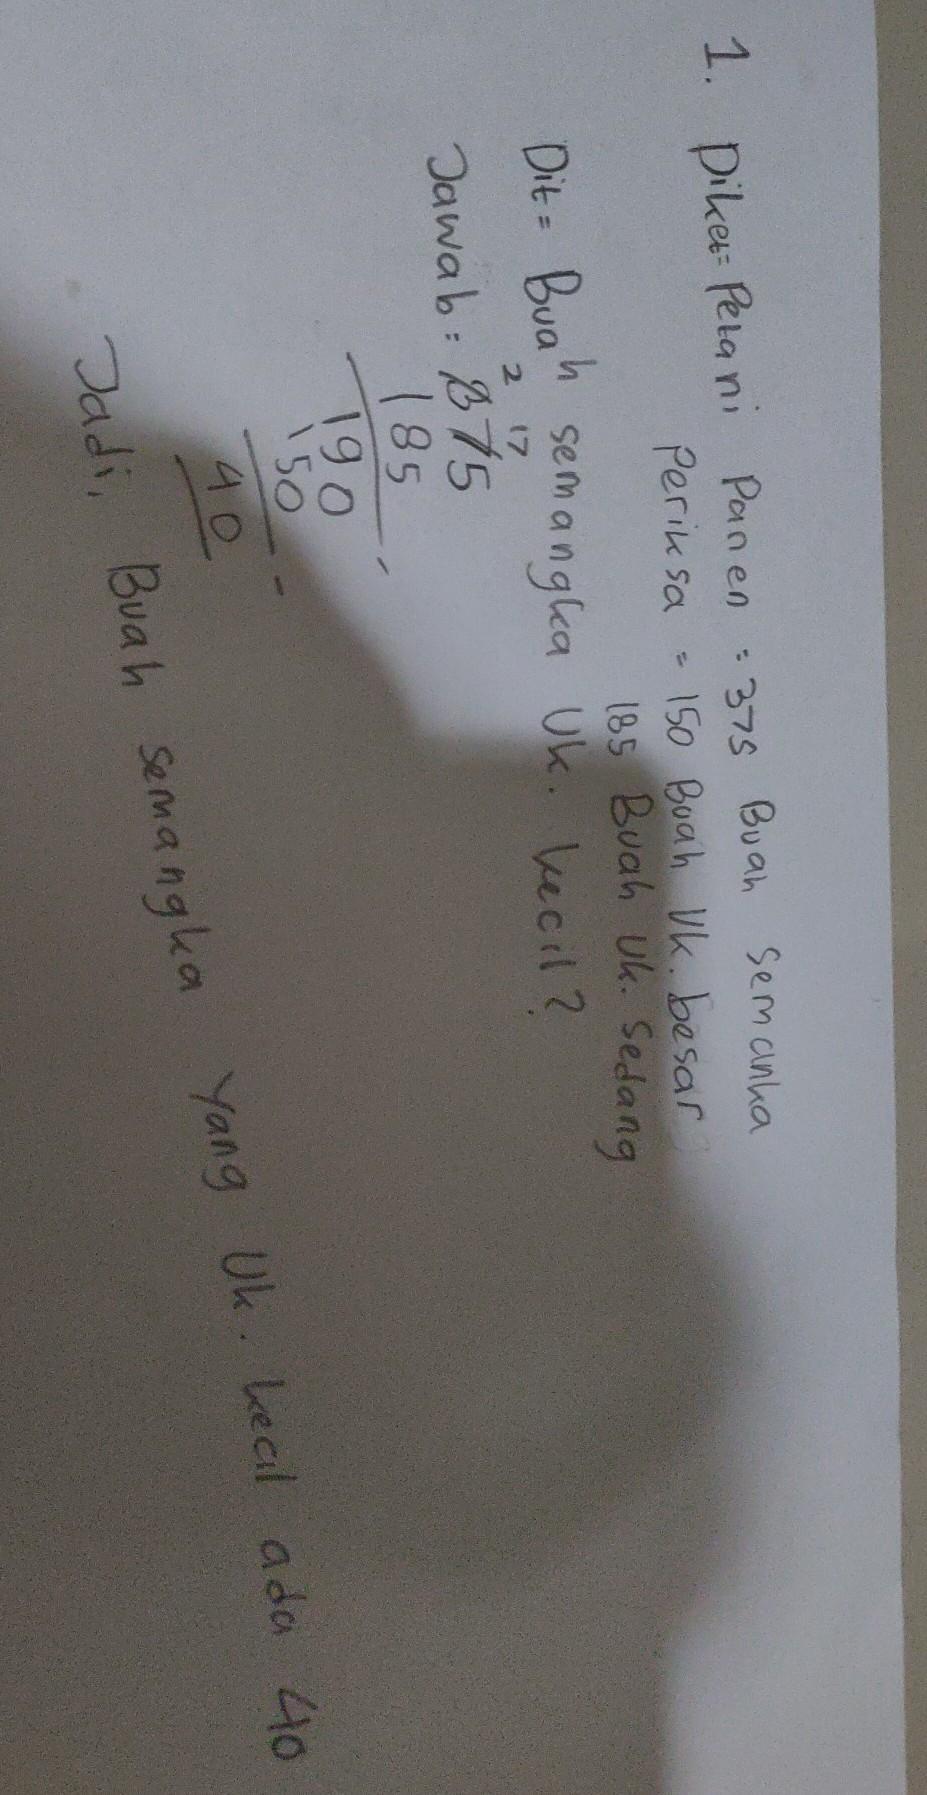 1. Diket= Petani Panen = 375 Buah Semanka
Periksa = 150 Buah Uk. besar
185 Buah Uk. Sedang
Dit = Buah semangka Uk. kecil?
2 17
Jawab = 375
185 -
190
150 -
40
Jadi, Buah semangka yang Uk. kecil ada 40